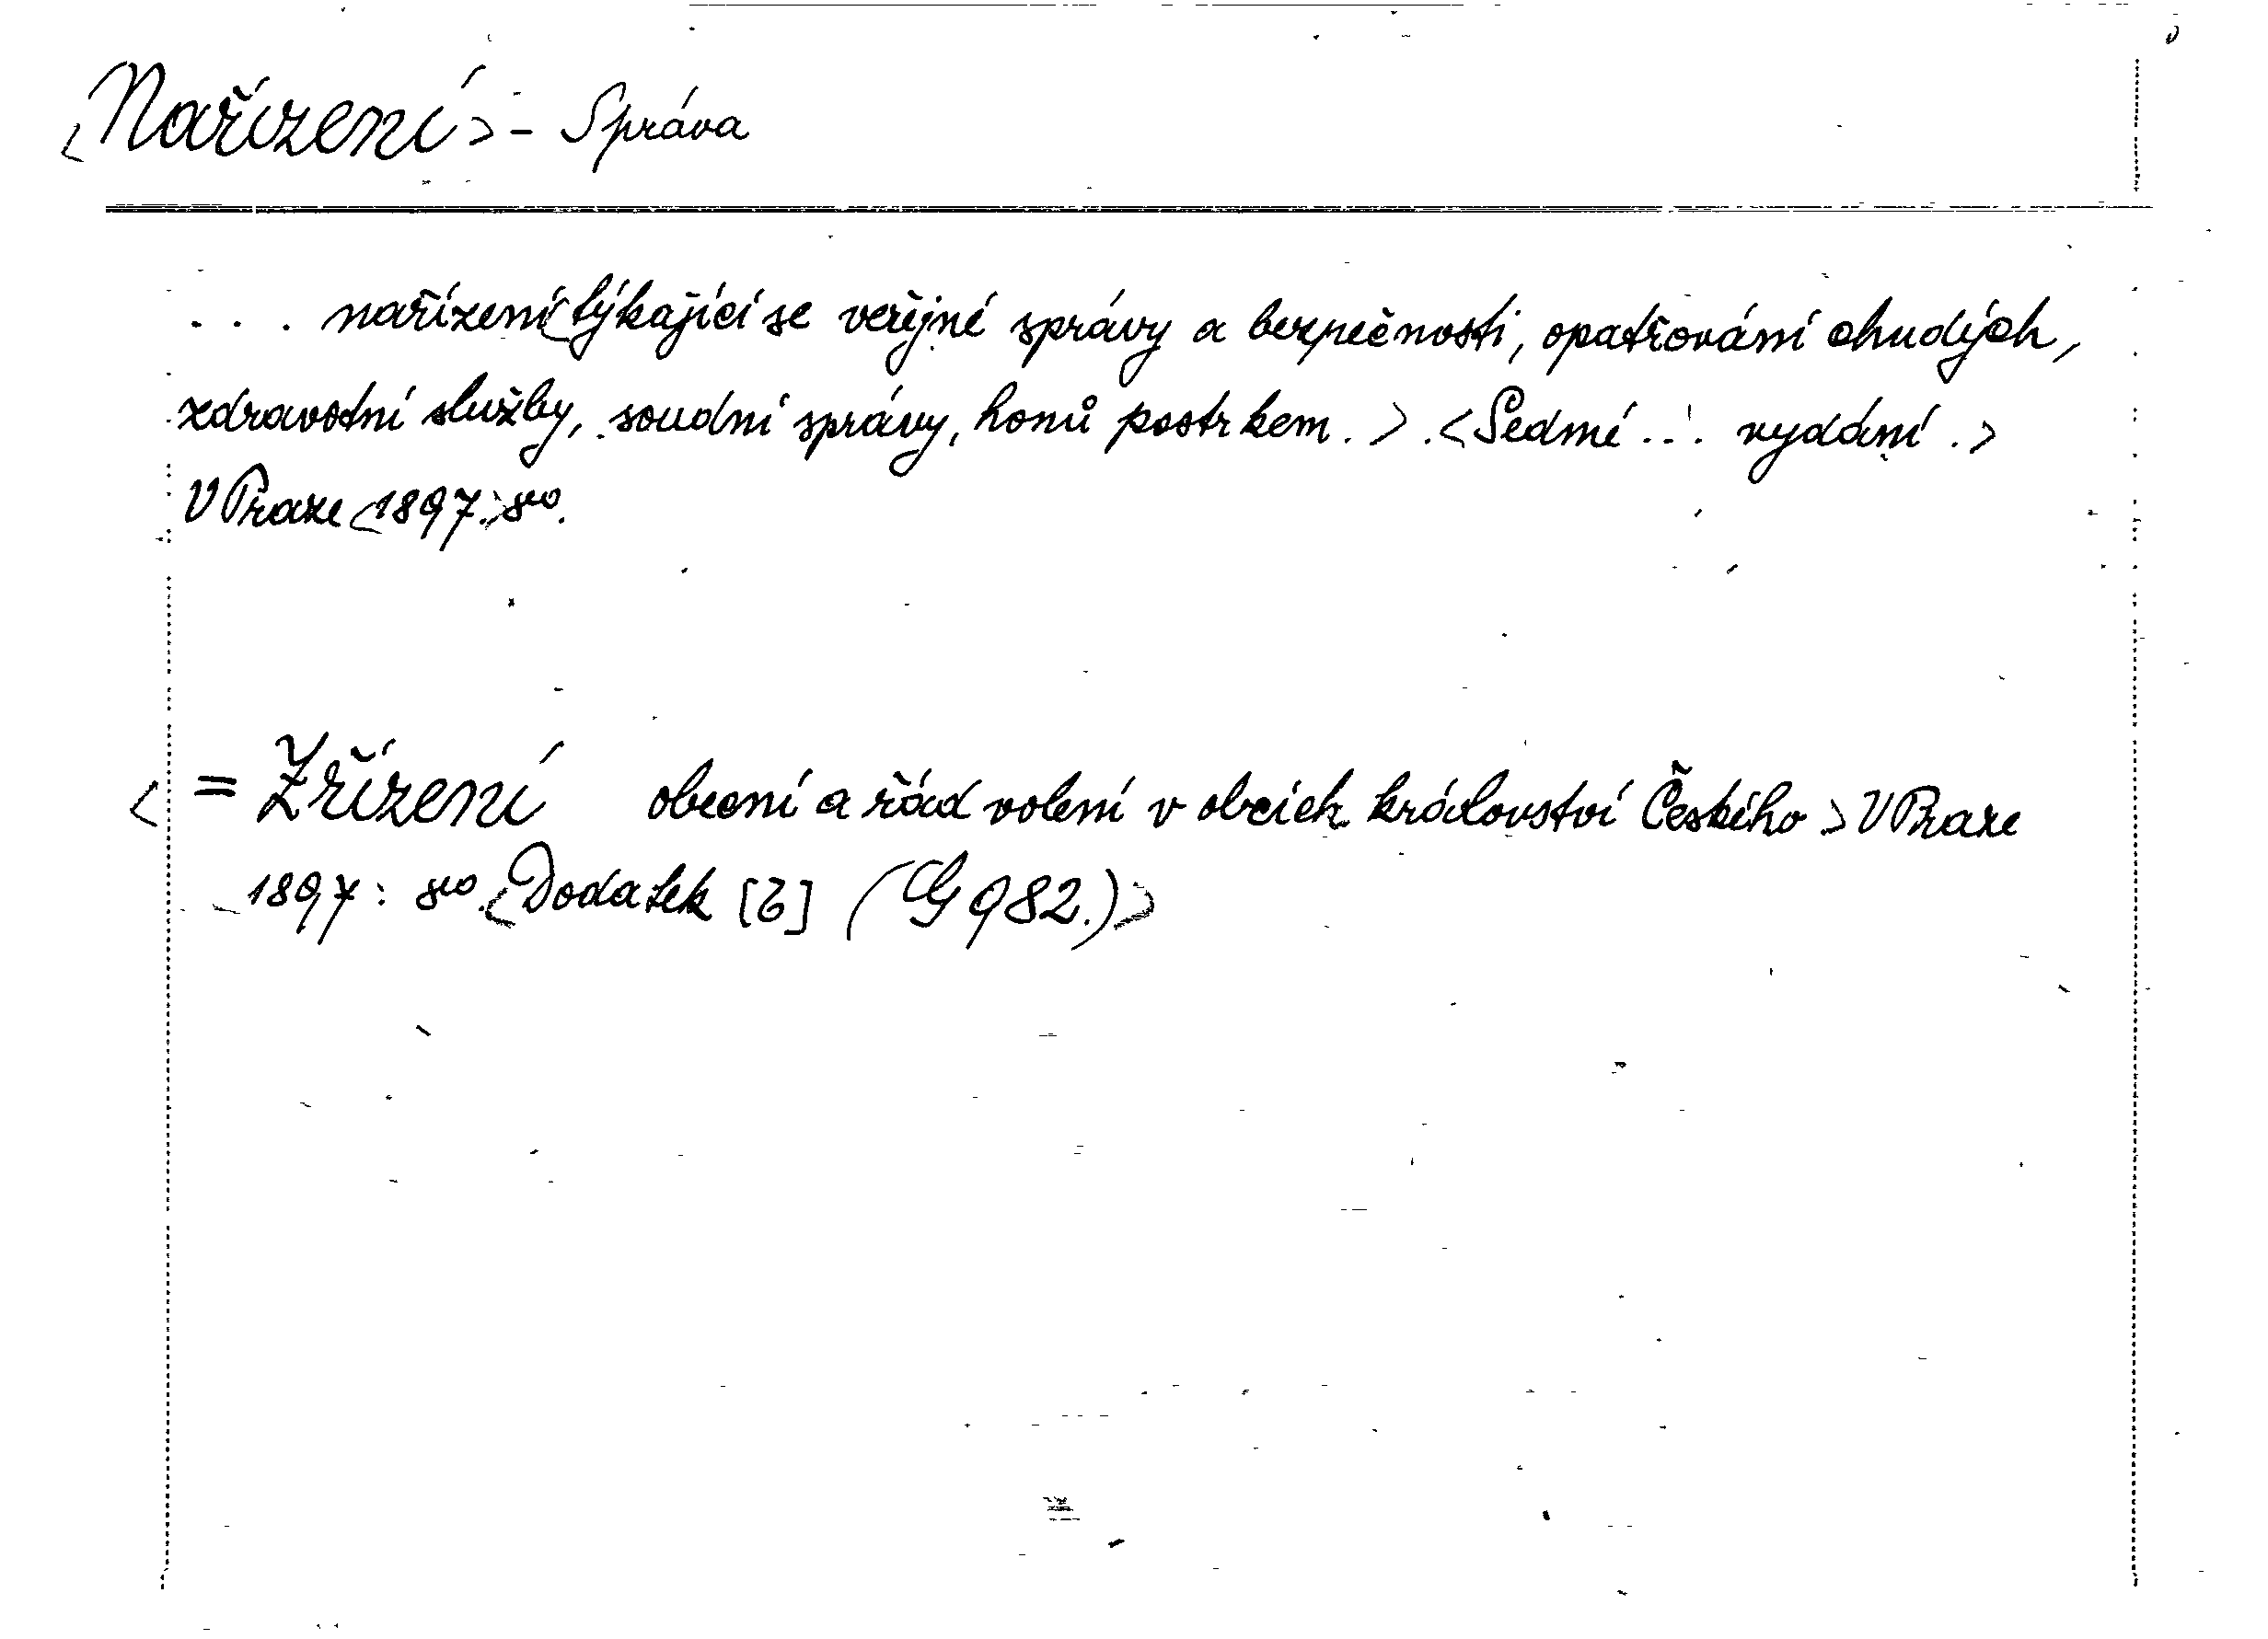 <Nařízení> - Správa
. . . nařízení <týkající se veřejné správy a bezpečnosti, opatřování chudých,
zdravotní služby, soudní správy, honů postrkem.> <Sedmé ... vydání.>
V Praze <1897.> 8vo.
< = Zřízení obecní a řád volení v obcích království Českého.> V Praze
1897: 8vo. <Dodatek [ ] (G 982.)>